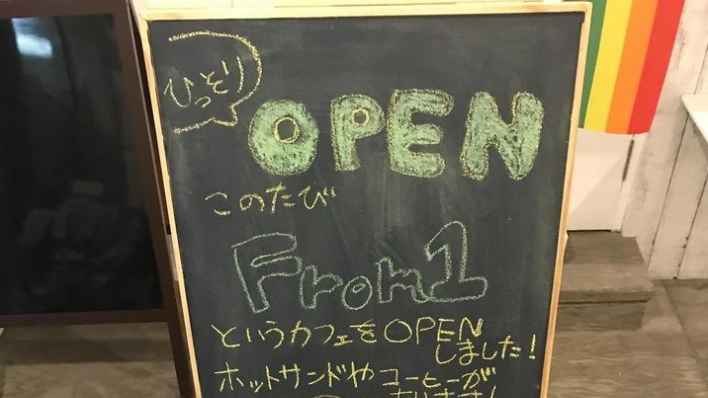 ひっそり
OPEN
このたび
From1
というカフェをOPEN
しました!
ホットサンドやコーヒーが